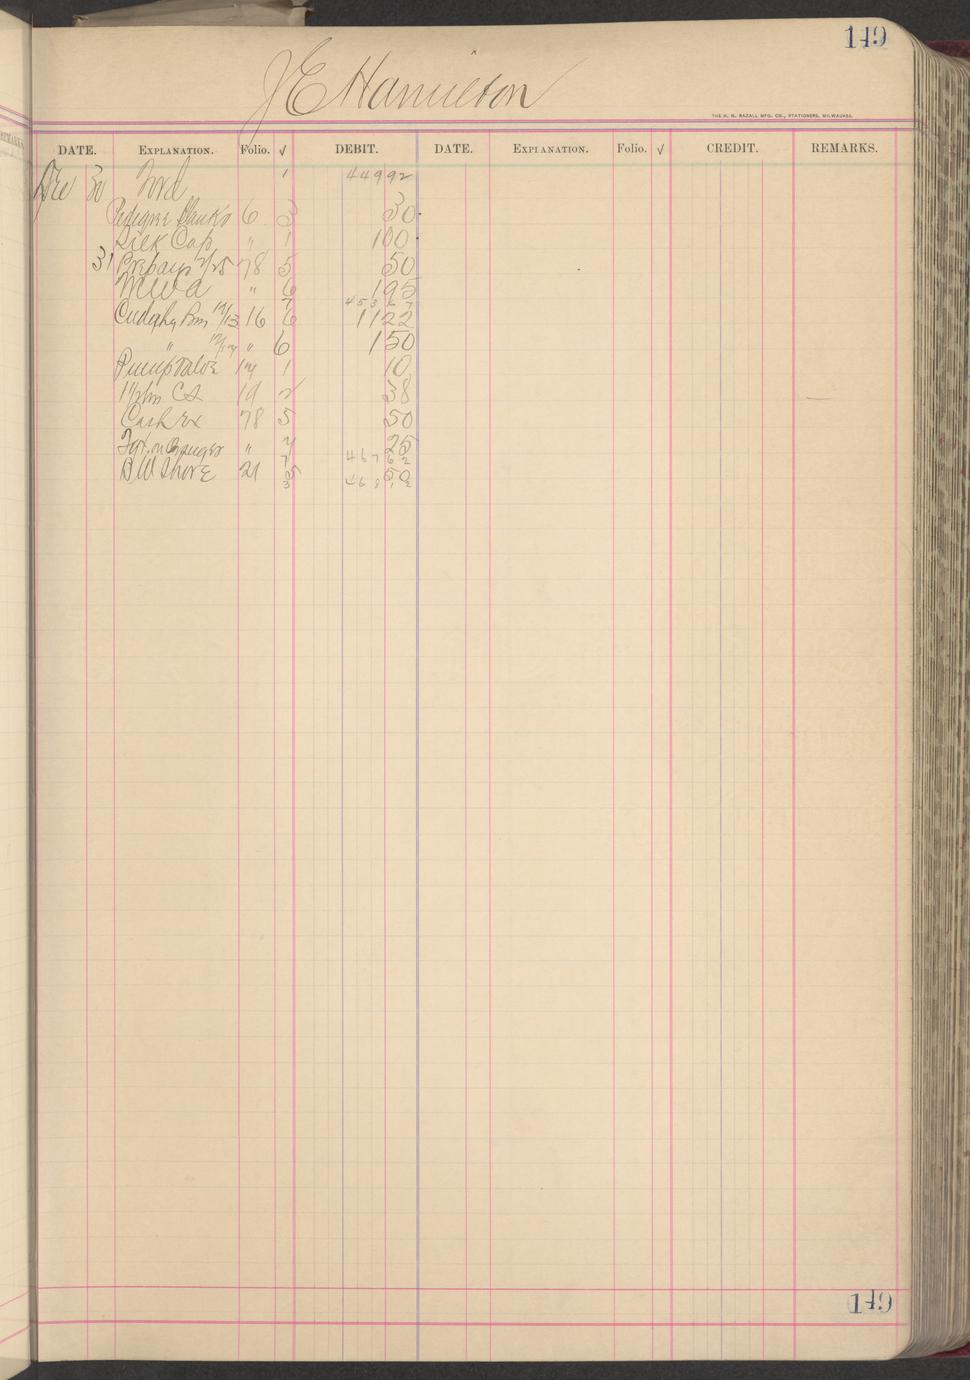 149
J E Hamilton
THE H. N. RAZALL MFG. CO., STATIONERS, MILWAUKEE.
DATE. EXPLANATION. Folio. √ DEBIT. DATE. EXPLANATION. Folio. √ CREDIT. REMARKS.
Dec 30 Ford 1 449 92
Pedigree Blanks 6 3 30
Silk Cap " 1 1 00
31 Prepays 2/25 78 5 50
MWA " 6 1 95
7 453 67
Cudahy Bm 12/13 16 6 11 22
" " 6 1 50
Pump Valve 17 1 10
1 1/2 hm CS 19 2 38
Cash Ex 78 5 50
Fgt. on " 7 25
7 467 62
B W Shore 21 5 50
3 468 12
149